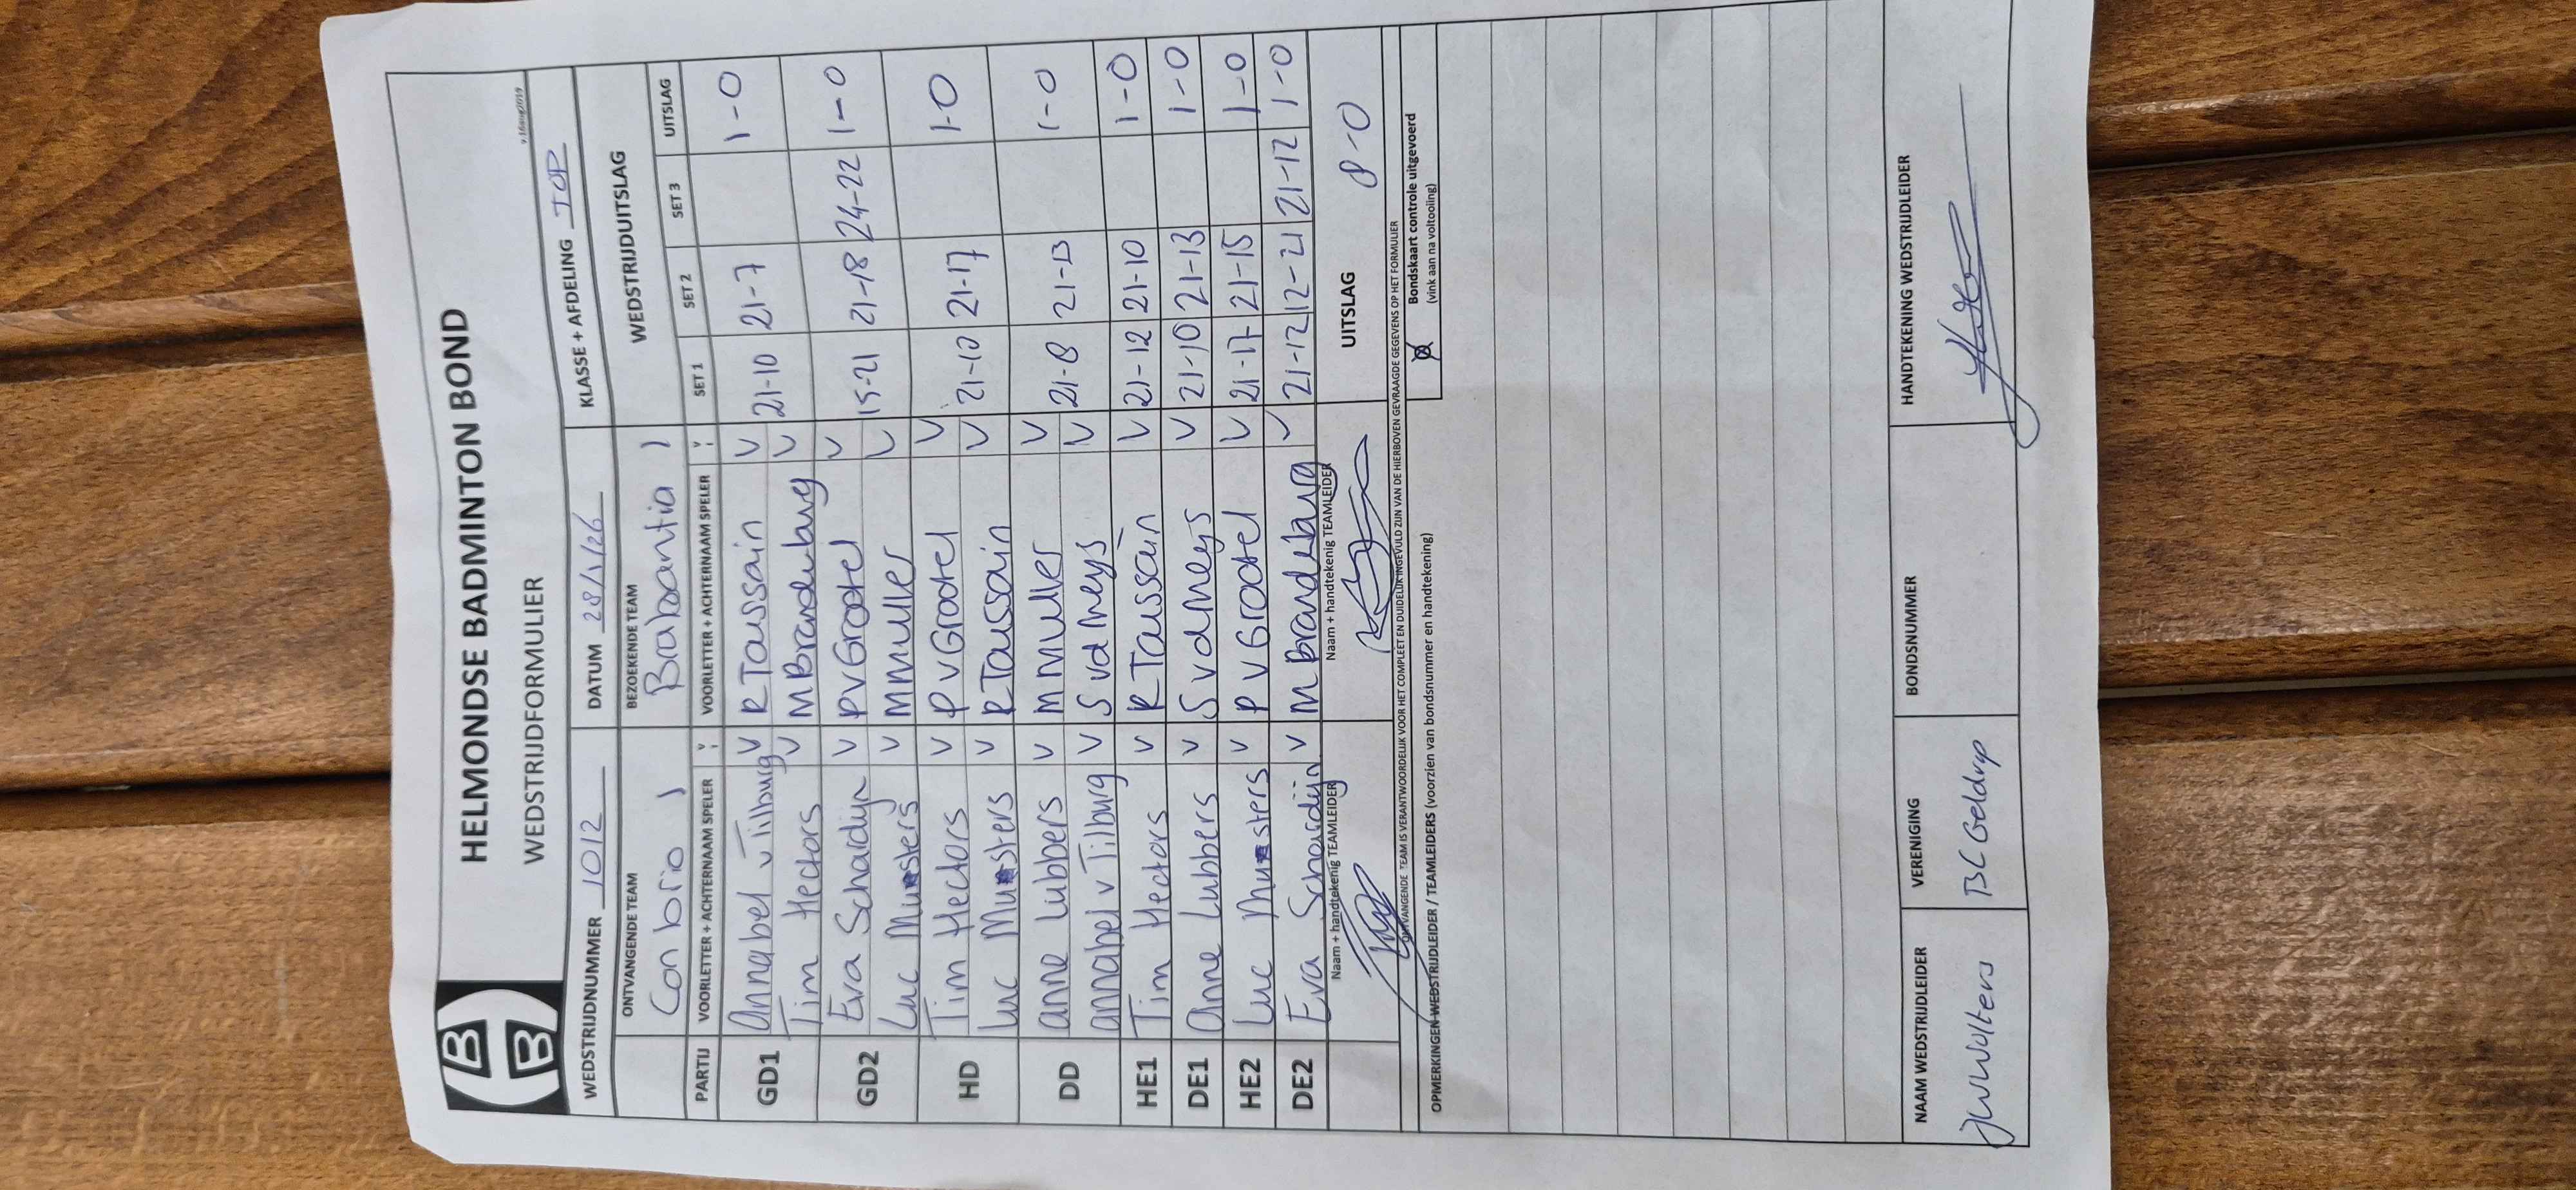 HB
B
HELMONDSE BADMINTON BOND
WEDSTRIJDFORMULIER
v.16aug2019
WEDSTRIJDNUMMER 1012 DATUM 28/1/26 KLASSE + AFDELING TOP
ONTVANGENDE TEAM BEZOEKENDE TEAM WEDSTRIJDUITSLAG
Con brio 1 Brabantia 1
PARTIJ VOORLETTER + ACHTERNAAM SPELER V VOORLETTER + ACHTERNAAM SPELER V SET 1 SET 2 SET 3 UITSLAG
GD1 Annabel v Tilburg V R Toussain V 21-10 21-7 1-0
Tim Hectors V M Brandenburg V
GD2 Eva Schardijn V P v Grootel V 15-21 21-18 24-22 1-0
Luc Munsters V M Muller V
HD Tim Hectors V P v Grootel V 21-10 21-17 1-0
Luc Munsters V R Toussain V
DD Anne Lubbers V M Muller V 21-8 21-13 1-0
Annabel v Tilburg V S vd Meys V
HE1 Tim Hectors V R Toussain V 21-12 21-10 1-0
DE1 Anne Lubbers V S vd Meys V 21-10 21-13 1-0
HE2 Luc Munsters V P v Grootel V 21-17 21-15 1-0
DE2 Eva Schardijn V M Brandenburg V 21-12 12-21 21-12 1-0
Naam + handtekenig TEAMLEIDER Naam + handtekenig TEAMLEIDER UITSLAG 8-0
ONTVANGENDE TEAM IS VERANTWOORDELIJK VOOR HET COMPLEET EN DUIDELIJK INGEVULD ZIJN VAN DE HIERBOVEN GEVRAAGDE GEGEVENS OP HET FORMULIER
OPMERKINGEN WEDSTRIJDLEIDER / TEAMLEIDERS (voorzien van bondsnummer en handtekening)
Bondskaart controle uitgevoerd
(vink aan na voltooiing)
NAAM WEDSTRIJDLEIDER VERENIGING BONDSNUMMER HANDTEKENING WEDSTRIJDLEIDER
JW Wolters BC Geldrop